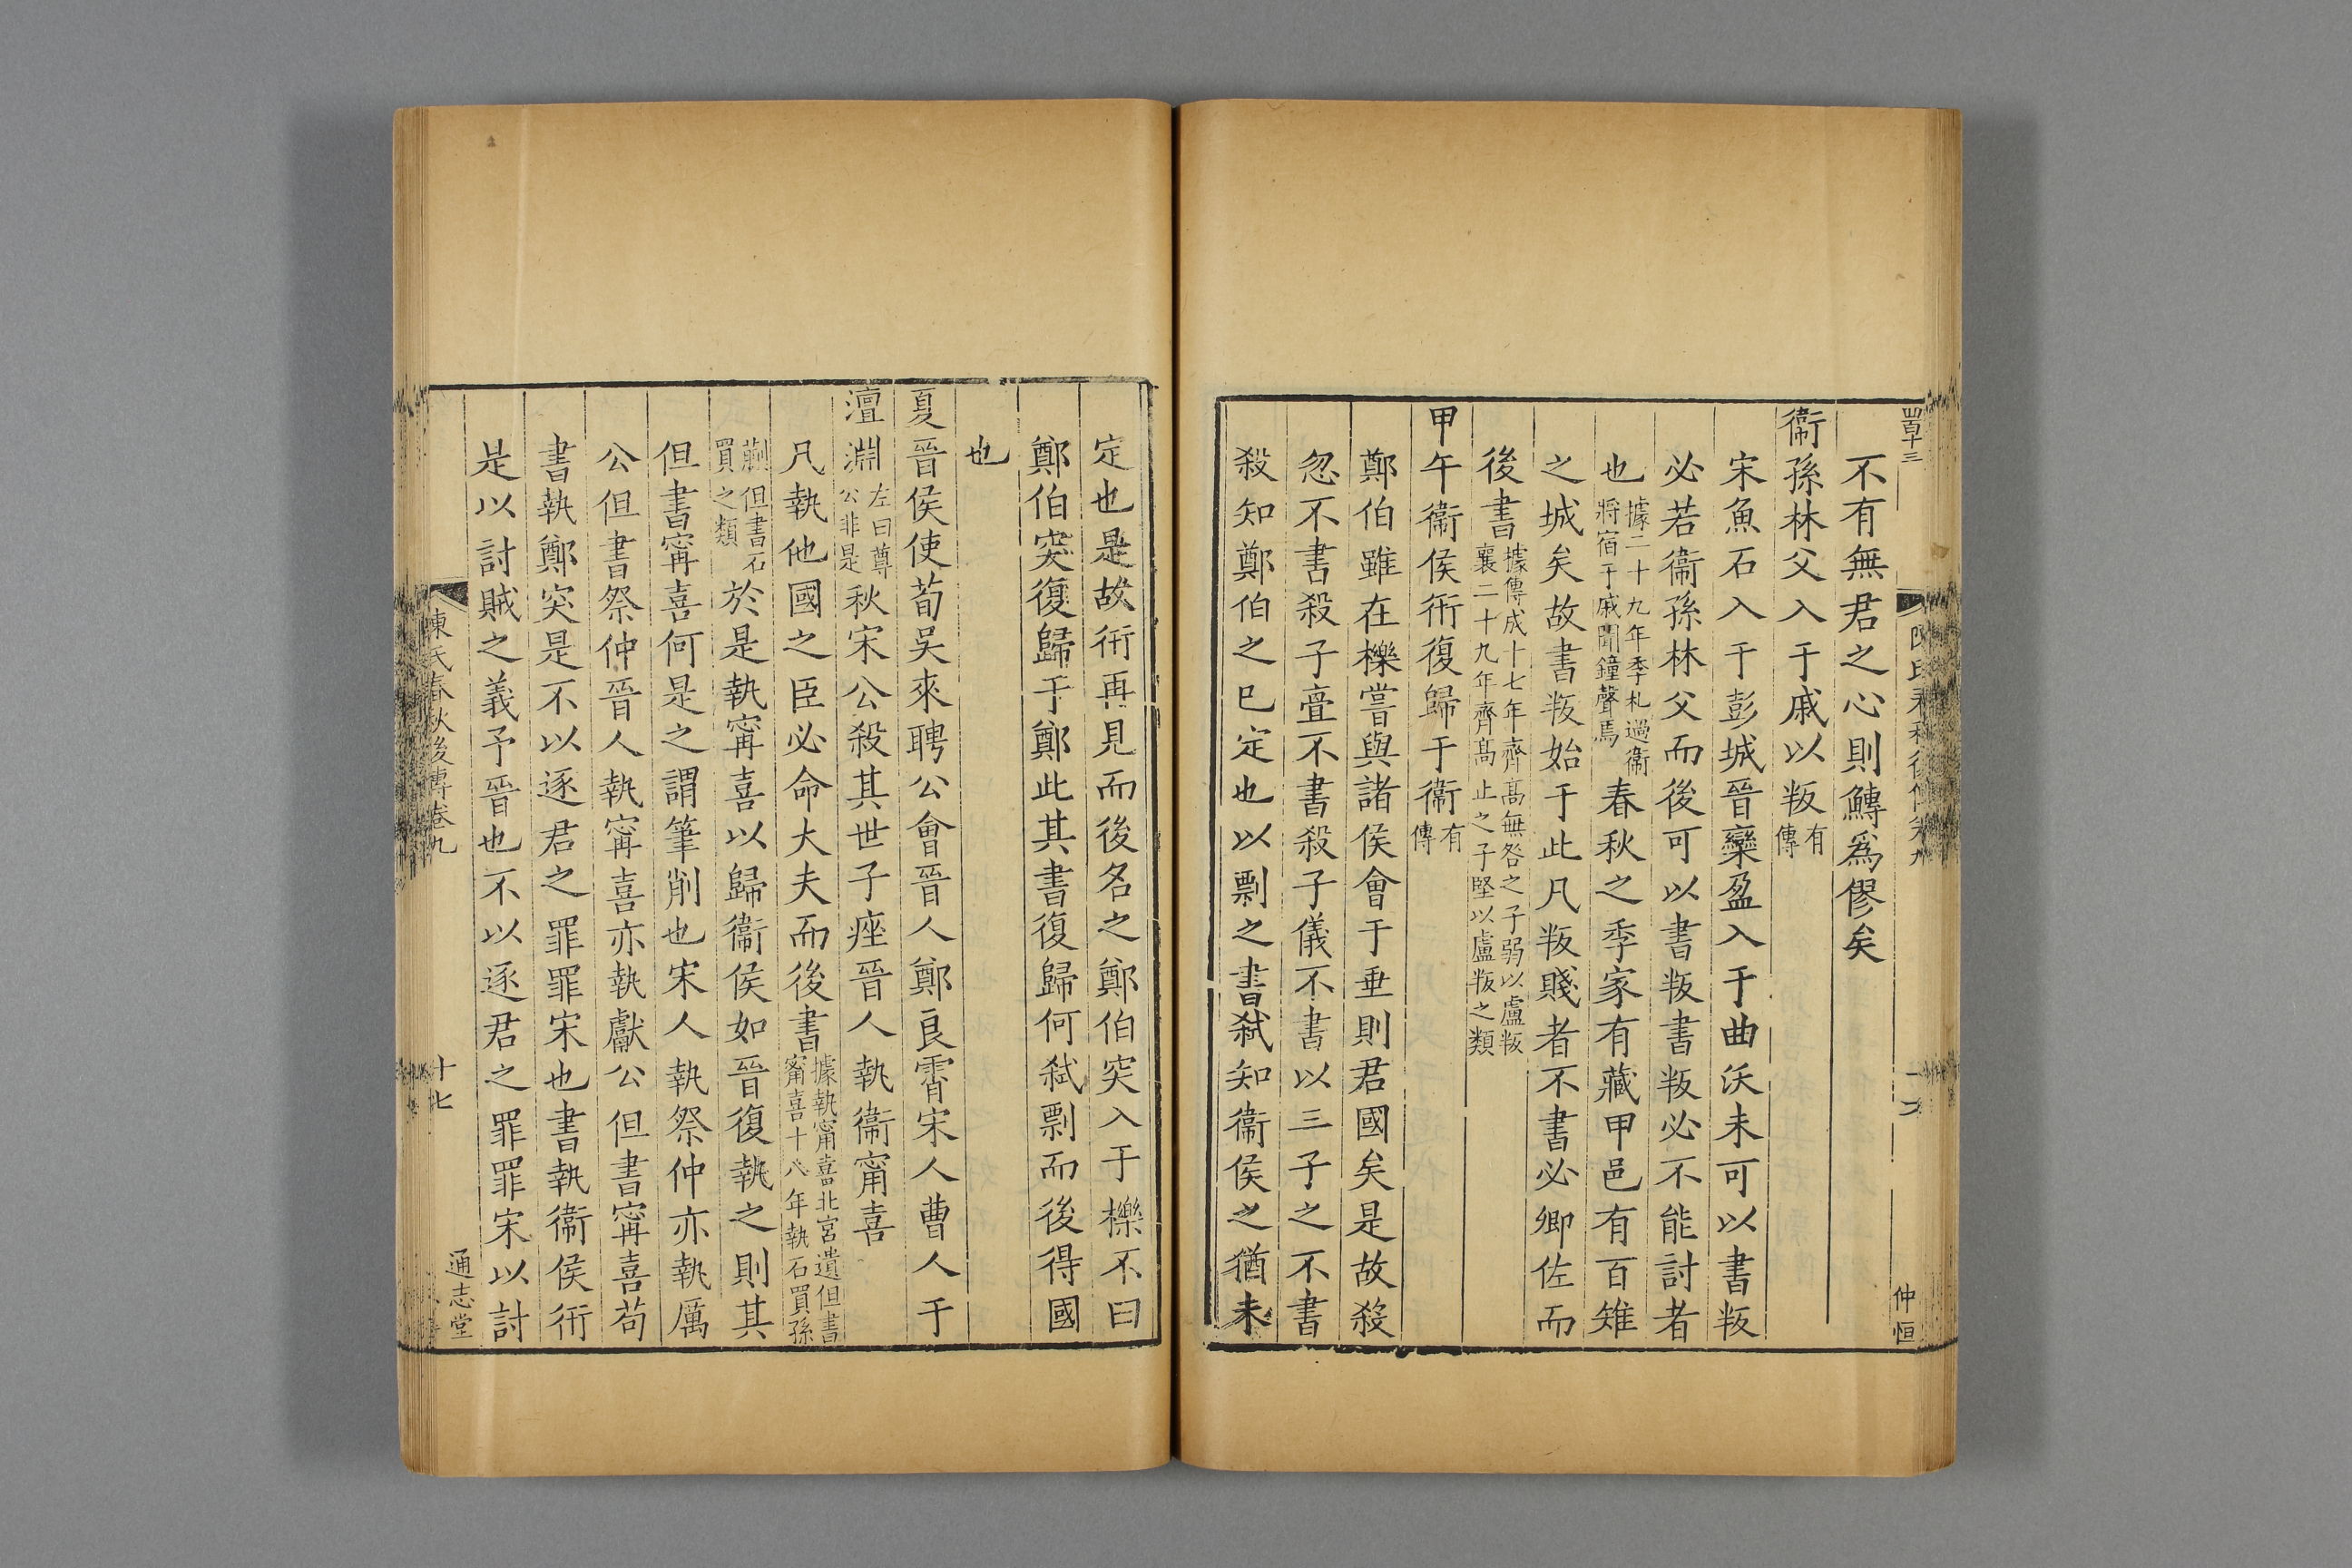 不有無君之心則鱄爲僇矣
衞孫林父入于戚以叛有傳
宋魚石入于彭城晉欒盈入于曲沃未可以書叛
必若衞孫林父而後可以書叛書叛必不能討者
也據二十九年季札過衞將宿于戚聞鐘聲焉春秋之季家有藏甲邑有百雉
之城矣故書叛始于此凡叛賤者不書必卿佐而
後書據傳成十七年齊髙無咎之子弱以盧叛襄二十九年齊髙止之子竪以盧叛之類
甲午衞侯衎復歸于衞有傳
鄭伯雖在櫟嘗與諸侯會于垂則君國矣是故殺
忽不書殺子亹不書殺子儀不書以三子之不書
殺知鄭伯之已定也以剽之書弒知衞侯之猶未
定也是故衎再見而後名之鄭伯突入于櫟不曰
鄭伯突復歸于鄭此其書復歸何弒剽而後得國
也
夏晉侯使荀吳來聘公會晉人鄭良霄宋人曹人于
澶淵左曰尊公非是秋宋公殺其世子痤晉人執衞甯喜
凡執他國之臣必命大夫而後書據執甯喜北宮遺但書甯喜十八年執石買孫
蒯但書石買之類於是執甯喜以歸衞侯如晉復執之則其
但書甯喜何是之謂筆削也宋人執祭仲亦執厲
公但書祭仲晉人執甯喜亦執獻公但書甯喜苟
書執鄭突是不以逐君之罪罪宋也書執衞侯衎
是以討賊之義予晉也不以逐君之罪罪宋以討
陳氏春秋後傳卷九
十七
通志堂
仲恒